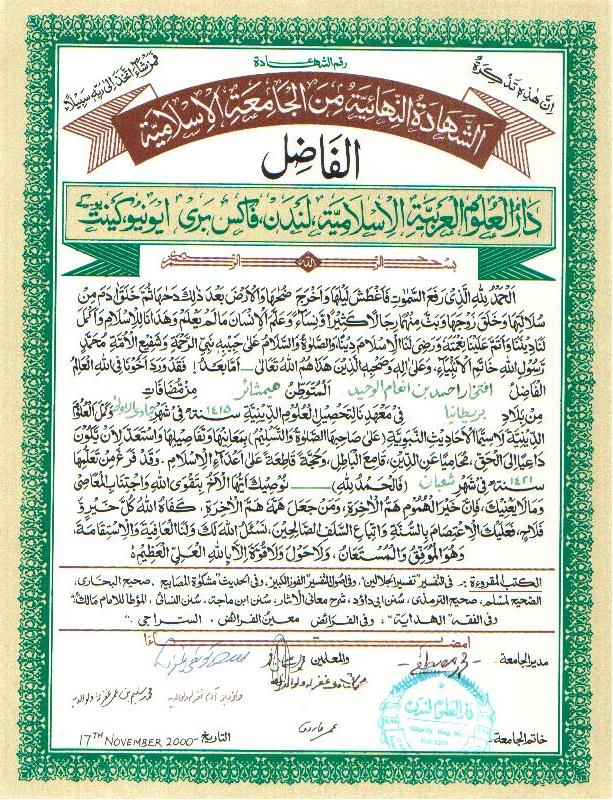 رقم الشهادة
إن هذه تذكرة
فمن شاء اتخذ إلى ربه سبيلا
الشهادة النهائية من الجامعة الإسلامية
الفاضل
دار العلوم العربية الإسلامية، لندن، فاكس بري ايونيو كينت يوكے
بسم الله الرحمن الرحيم
الحمد لله الذي رفع السموت فأغطش ليلها وأخرج ضحها والأرض بعد ذلك دحها ثم خلق آدم من
سلالتها وخلق زوجها وبث منهما رجالا كثيرا ونساء وعلم الإنسان ما لم يعلم وهدانا للإسلام وأكمل
لنا ديننا وأتم علينا نعمته ورضي لنا الإسلام دينا والصلوة والسلام على حبيبه نبي الرحمة وشفيع الأمة محمد
رسول الله خاتم الأنبياء، وعلى آله وصحبه الذين هداهم الله تعالى أما بعد! فقد ورد أخونا في الله العالم
الفاضل افتخار احمد بن انعام الوحيد المتوطن هيمشائر من مضافات
من بلاد بريطانيا في معهدنا لتحصيل العلوم الدينية سنة ١٤١٥ في شهر جمادى الاولى وكمل العلوم
الدينية لا سيما الأحاديث النبوية (على صاحبها الصلوة والتسليم) بمعانيها وتفاصيلها واستعد لأن يكون
داعيا إلى الحق، محاميا عن الدين، قامع الباطل، وحجة قاطعة على أعداء الإسلام. وقد فرغ من تعلمها
سنة ١٤٢١ في شهر شعبان (فالحمد لله) نوصيك أيها الأخ بتقوى الله واجتناب المعاصي
وما لا يعنيك، فإن خير الهموم هم الآخرة، ومن جعل همه هم الآخرة، كفاه الله كل خيرة
فلاح، فعليك الاعتصام بالسنة واتباع السلف الصالحين، نسئل الله لك ولنا العافية والاستقامة،
وهو الموفق والمستعان. ولا حول ولا قوة إلا بالله العلي العظيم
الكتب المقروءة :- في التفسير "تفسير الجلالين" وفي أصول التفسير "الفوز الكبير" وفي الحديث "مشكوة المصابيح، صحيح البخاري،
الصحيح لمسلم، صحيح الترمذي، سنن أبي داؤد، شرح معاني الآثار، سنن ابن ماجة، سنن النسائي، المؤطا للامام مالك"
وفي الفقه "الهداية" وفي الفرائض "معين الفرائض، السراجي"
امضاءات
مدير الجامعة- والمعلمين
دار العلوم لندن
Charity Reg. No.
عمر فاروق
خاتم الجامعة- التاريخ- 17TH NOVEMBER 2000